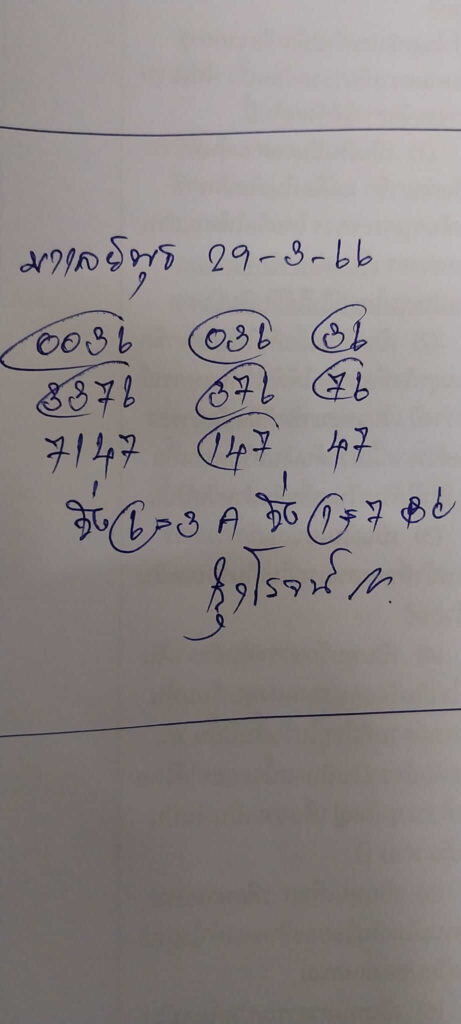 มาเลย์พุธ 29-3-66
0036 036 36
3376 376 76
7147 147 47
วิ่ง 6=3 A วิ่ง 1=7
โรจน์ N.